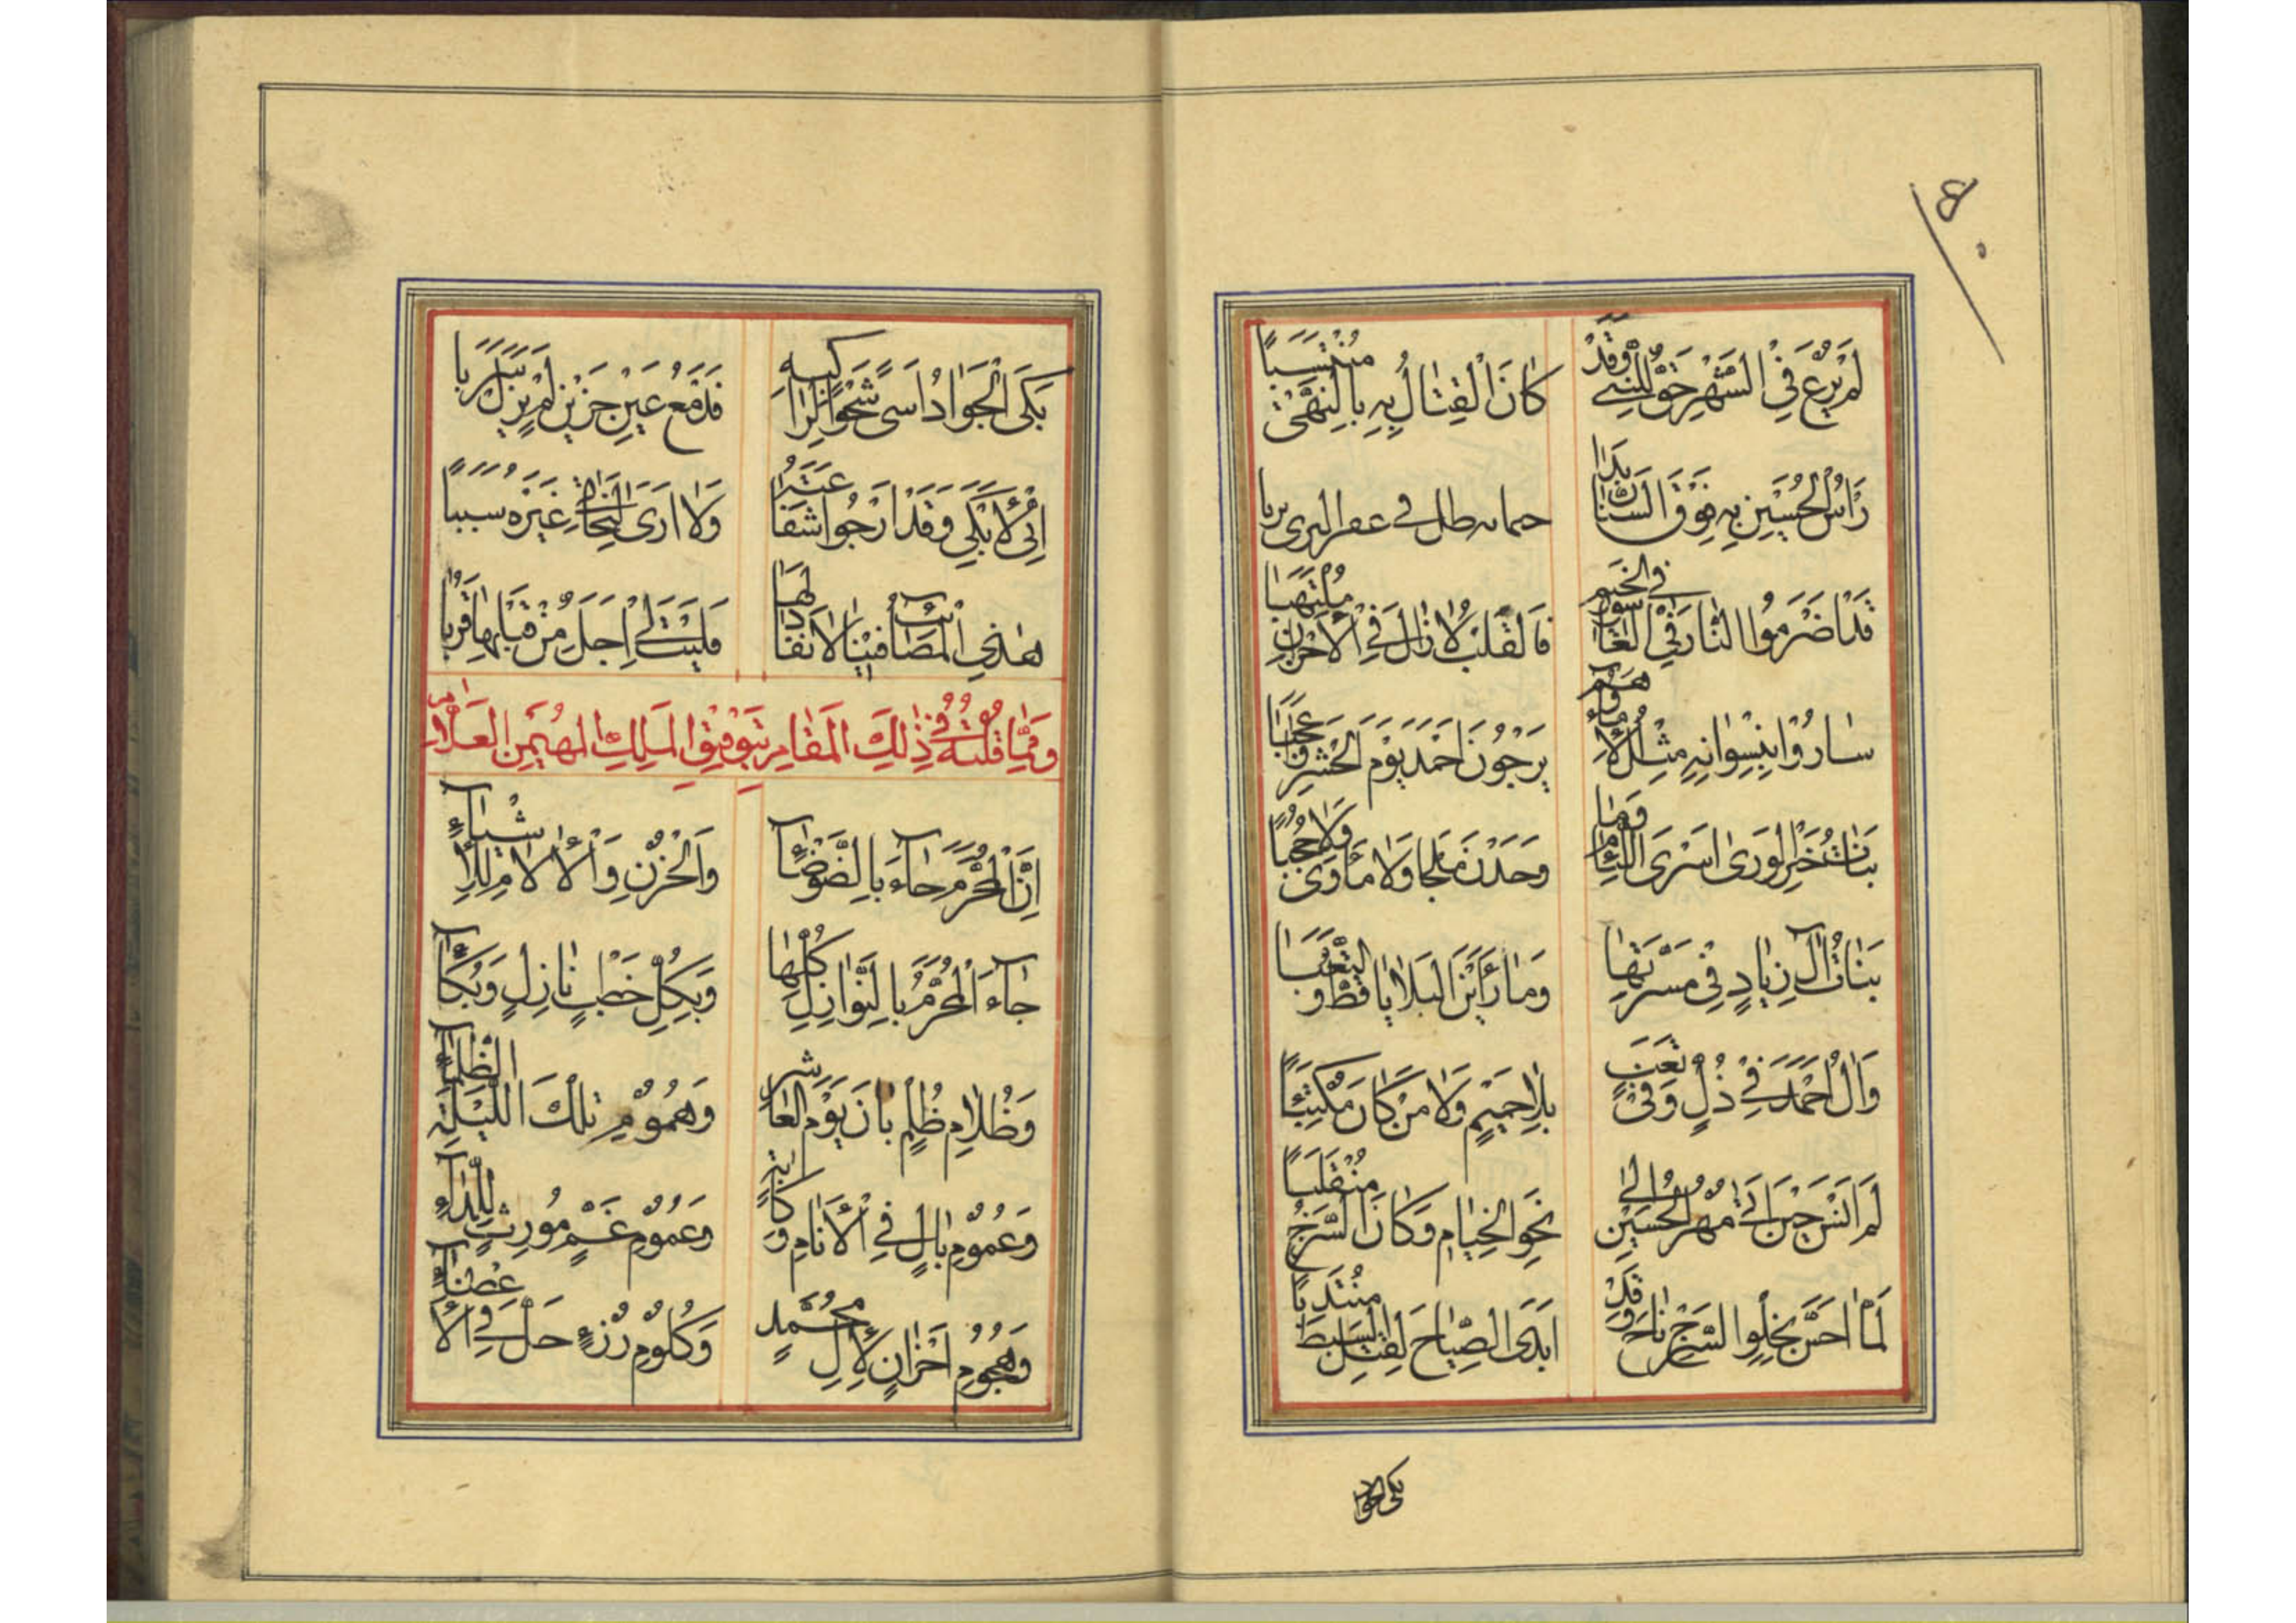 لَمْ يُرْعَ فِي الشَّهْرِ حَقٌّ لِلنَّبِيِّ وَقَدْ
كَانَ الْقِتَالُ بِهِ بِالنَّهْيِ مُنْتَسَبًا
رَأْسُ الْحُسَيْنِ بِهِ فَوْقَ السِّنَانِ بَدَا
حمانه طل في عفر البرى تربا
قَدْ اَضْرَمُوا النَّارَ فِي الْغَارِّ فِي الْخِيَمِ
فَالْقَلْبُ لَا زَالَ فِي الْاَحْزَانِ مُلْتَهِبًا
سَارُوا بِنِسْوَانِهِ مِثْلَ الْاِمَاءِ وَهُمْ
يَرْجُونَ اَحْمَدَ يَوْمَ الْحَشْرِ وَاعَجَبًا
بَنَاتُ خَيْرِ الْوَرَى اَسْرَى اللِّئَامِ وَمَا
وَجَدْنَ مَلْجَا وَلَا مَأْوَى وَلَا حُجُبًا
بَنَاتُ آلِ زِيَادٍ فِي مَسَرَّتِهَا
وَمَا رَأَيْنَ الْبَلَايَا قَطُّ وَالتَّعَبَا
وَآلُ اَحْمَدَ فِي ذُلٍّ وَفِي تَعَبٍ
بِلَا حَمِيمٍ وَلَا مَنْ كَانَ مُكْتَئِبًا
لَمْ اَنْسَ حِينَ اَتَى مُهْرُ الْحُسَيْنِ اِلَى
نَحْوِ الْخِيَامِ وَكَانَ السَّرْجُ مُنْقَلِبًا
لَمَّا اَحَسَّ بِخُلُوِّ السَّرْجِ نَاحَ وَقَدْ
اَبْدَى الصِّيَاحَ لِقَتْلِ السِّبْطِ مُنْتَدِبًا
بكى الجواد
بَكَى الْجَوَادُ اَسًى شَجْوًا لِرَاكِبِهِ
فَدَمْعُ عَيْنِ حَزِينٍ لَمْ يَزَلْ سَرِبًا
اِنِّي لَاَبْكِي وَقَدْ اَرْجُو شَفَاعَتَهُ
وَلَا اَرَى لِلنَّجَاةِ غَيْرَهُ سَبَبًا
هٰذِي الْمَصَائِبُ فِينَا لَا نَفَادَ لَهَا
فَلَيْتَ لِي اَجَلٌ مِنْ قَبْلِهَا قَرُبَا
وَمِمَّا قُلْتُهُ فِي ذٰلِكَ الْمَقَامِ بِتَوْفِيقِ الْمَلِكِ الْمُهَيْمِنِ الْعَلَّامِ
اِنَّ الْمُحَرَّمَ جَآءَ بِالضَّوْضَآءِ
وَالْحُزْنِ وَالْآلَامِ لِلْاَشْيَآءِ
جَآءَ الْمُحَرَّمُ بِالنَّوَازِلِ كُلِّهَا
وَبِكُلِّ خَطْبٍ نَازِلٍ وَبُكَآءِ
وَظَلَامِ ظُلْمٍ بَانَ يَوْمَ الْعَاشِرِ
وَهُمُومِ تِلْكَ اللَّيْلَةِ الظَّلْمَآءِ
وَغُمُومِ بَالٍ فِي الْاَنَامِ وَكَآبَةٍ
وَعُمُومِ غَمٍّ مُورِثٍ لِلدَّآءِ
وَهُجُومِ اَحْزَانٍ لِآلِ مُحَمَّدٍ
وَكُلُومِ رُزْءٍ حَلَّ فِي الْاَعْضَآءِ